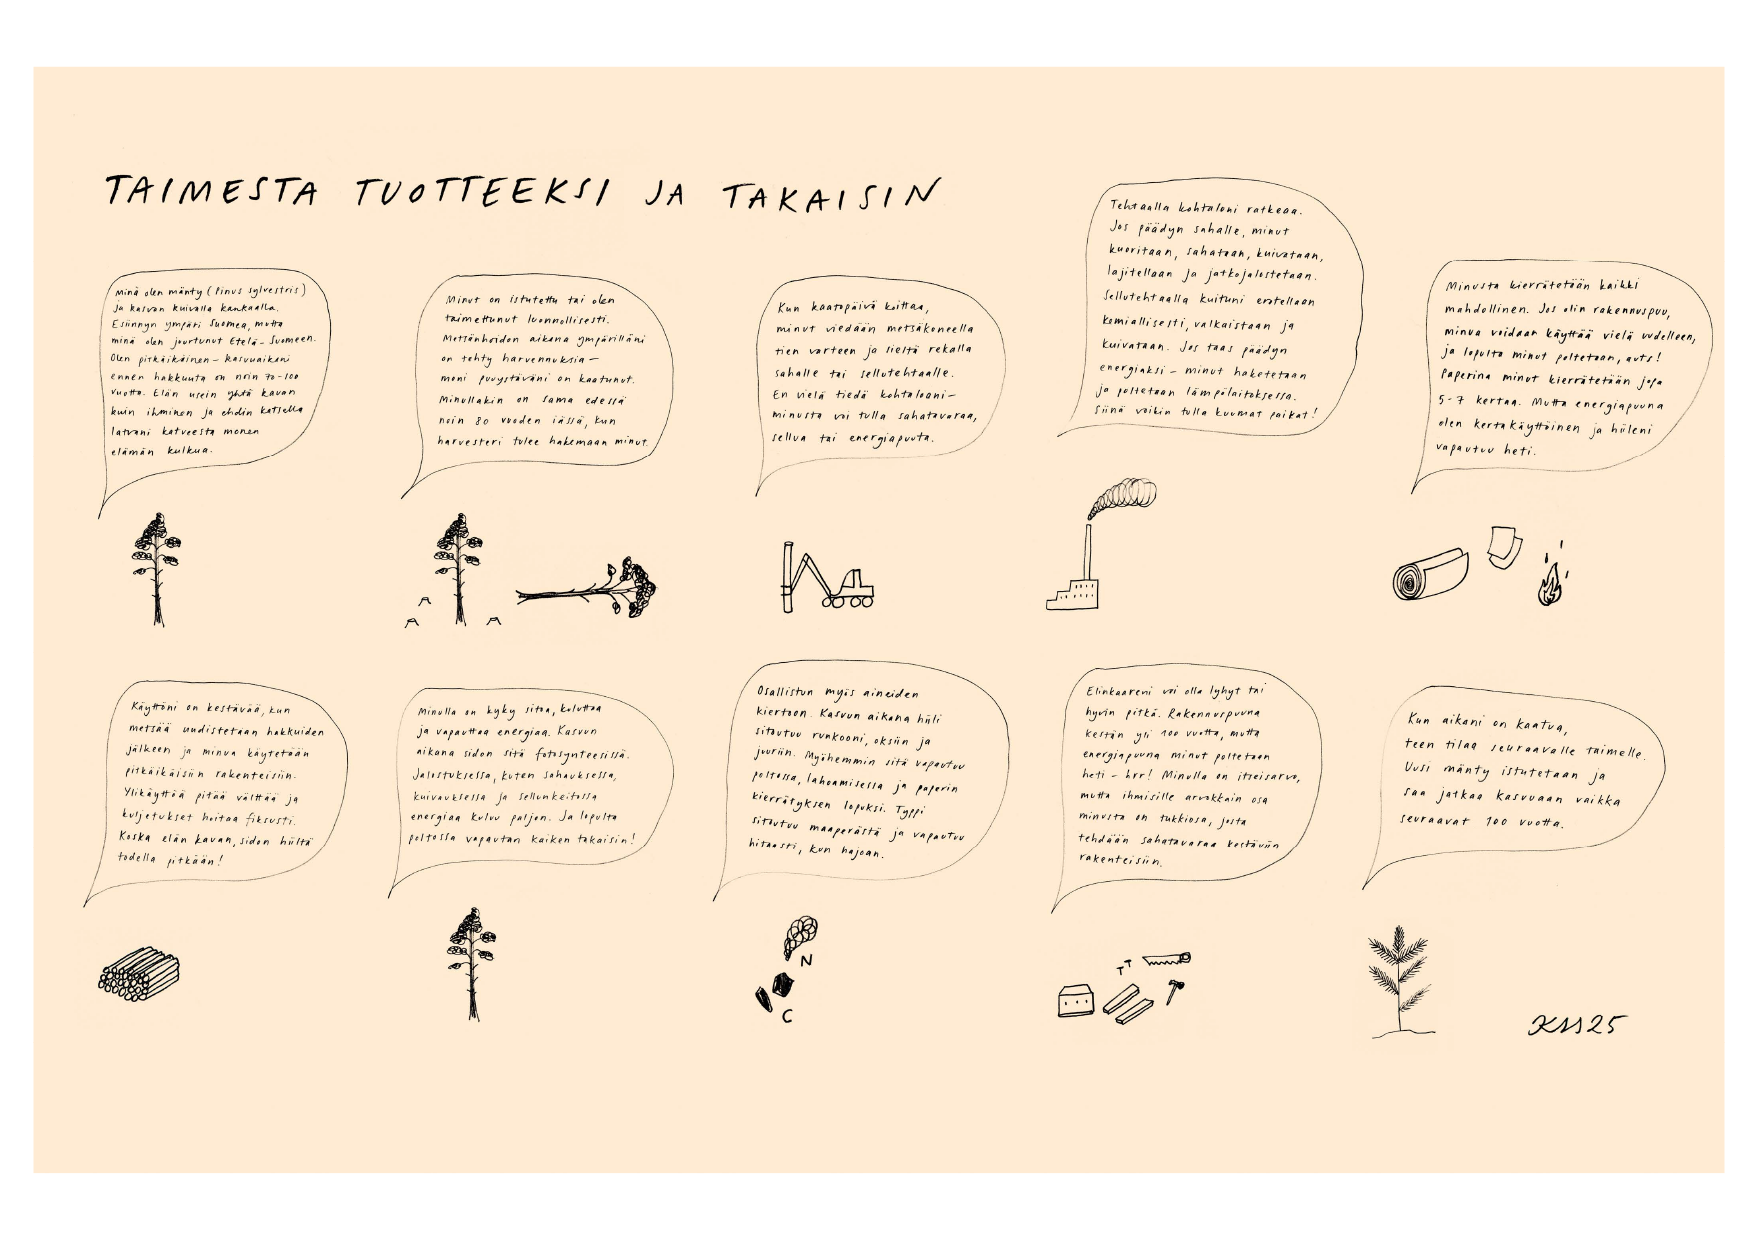 TAIMESTA TUOTTEEKSI JA TAKAISIN
Minä olen mänty (Pinus sylvestris)
ja kasvan kuivalla kankaalla.
Esiinnyn ympäri Suomea, mutta
minä olen juurtunut Etelä-Suomeen.
Olen pitkäikäinen – kasvuaikani
ennen hakkuuta on noin 70-100
vuotta. Elän usein yhtä kauan
kuin ihminen ja ehdin katsella
latvani katveesta monen
elämän kulkua.
Minut on istutettu tai olen
taimettunut luonnollisesti.
Metsänhoidon aikana ympärilläni
on tehty harvennuksia –
moni puuystäväni on kaatunut.
Minullakin on sama edessä
noin 80 vuoden iässä, kun
harvesteri tulee hakemaan minut.
Kun kaatopäivä koittaa,
minut viedään metsäkoneella
tien varteen ja sieltä rekalla
sahalle tai sellutehtaalle.
En vielä tiedä kohtaloani –
minusta voi tulla sahatavaraa,
sellua tai energiapuuta.
Tehtaalla kohtaloni ratkeaa.
Jos päädyn sahalle, minut
kuoritaan, sahataan, kuivataan,
lajitellaan ja jatkojalostetaan.
Sellutehtaalla kuituni erotellaan
kemiallisesti, valkaistaan ja
kuivataan. Jos taas päädyn
energiaksi – minut haketetaan
ja poltetaan lämpölaitoksessa.
Siinä voikin tulla kuumat paikat!
Minusta kierrätetään kaikki
mahdollinen. Jos olin rakennuspuu,
minua voidaan käyttää vielä uudelleen,
ja lopulta minut poltetaan, auts!
Paperina minut kierrätetään jopa
5-7 kertaa. Mutta energiapuuna
olen kertakäyttöinen ja hiileni
vapautuu heti.
Käyttöni on kestävää, kun
metsää uudistetaan hakkuiden
jälkeen ja minua käytetään
pitkäikäisiin rakenteisiin.
Ylikäyttöä pitää välttää ja
kuljetukset hoitaa fiksusti.
Koska elän kauan, sidon hiiltä
todella pitkään!
Minulla on kyky sitoa, kuluttaa
ja vapauttaa energiaa. Kasvun
aikana sidon sitä fotosynteesissä.
Jalostuksessa, kuten sahauksessa,
kuivauksessa ja sellunkeitossa
energiaa kuluu paljon. Ja lopulta
poltossa vapautan kaiken takaisin!
Osallistun myös aineiden
kiertoon. Kasvun aikana hiili
sitoutuu runkooni, oksiin ja
juuriin. Myöhemmin sitä vapautuu
poltossa, lahoamisessa ja paperin
kierrätyksen lopuksi. Typpi
sitoutuu maaperästä ja vapautuu
hitaasti, kun hajoan.
Elinkaareni voi olla lyhyt tai
hyvin pitkä. Rakennuspuuna
kestän yli 100 vuotta, mutta
energiapuuna minut poltetaan
heti – hrr! Minulla on itseisarvo,
mutta ihmisille arvokkain osa
minusta on tukkiosa, josta
tehdään sahatavaraa kestäviin
rakenteisiin.
Kun aikani on kaatua,
teen tilaa seuraavalle taimelle.
Uusi mänty istutetaan ja
saa jatkaa kasvuaan vaikka
seuraavat 100 vuotta.
N
C
KM25